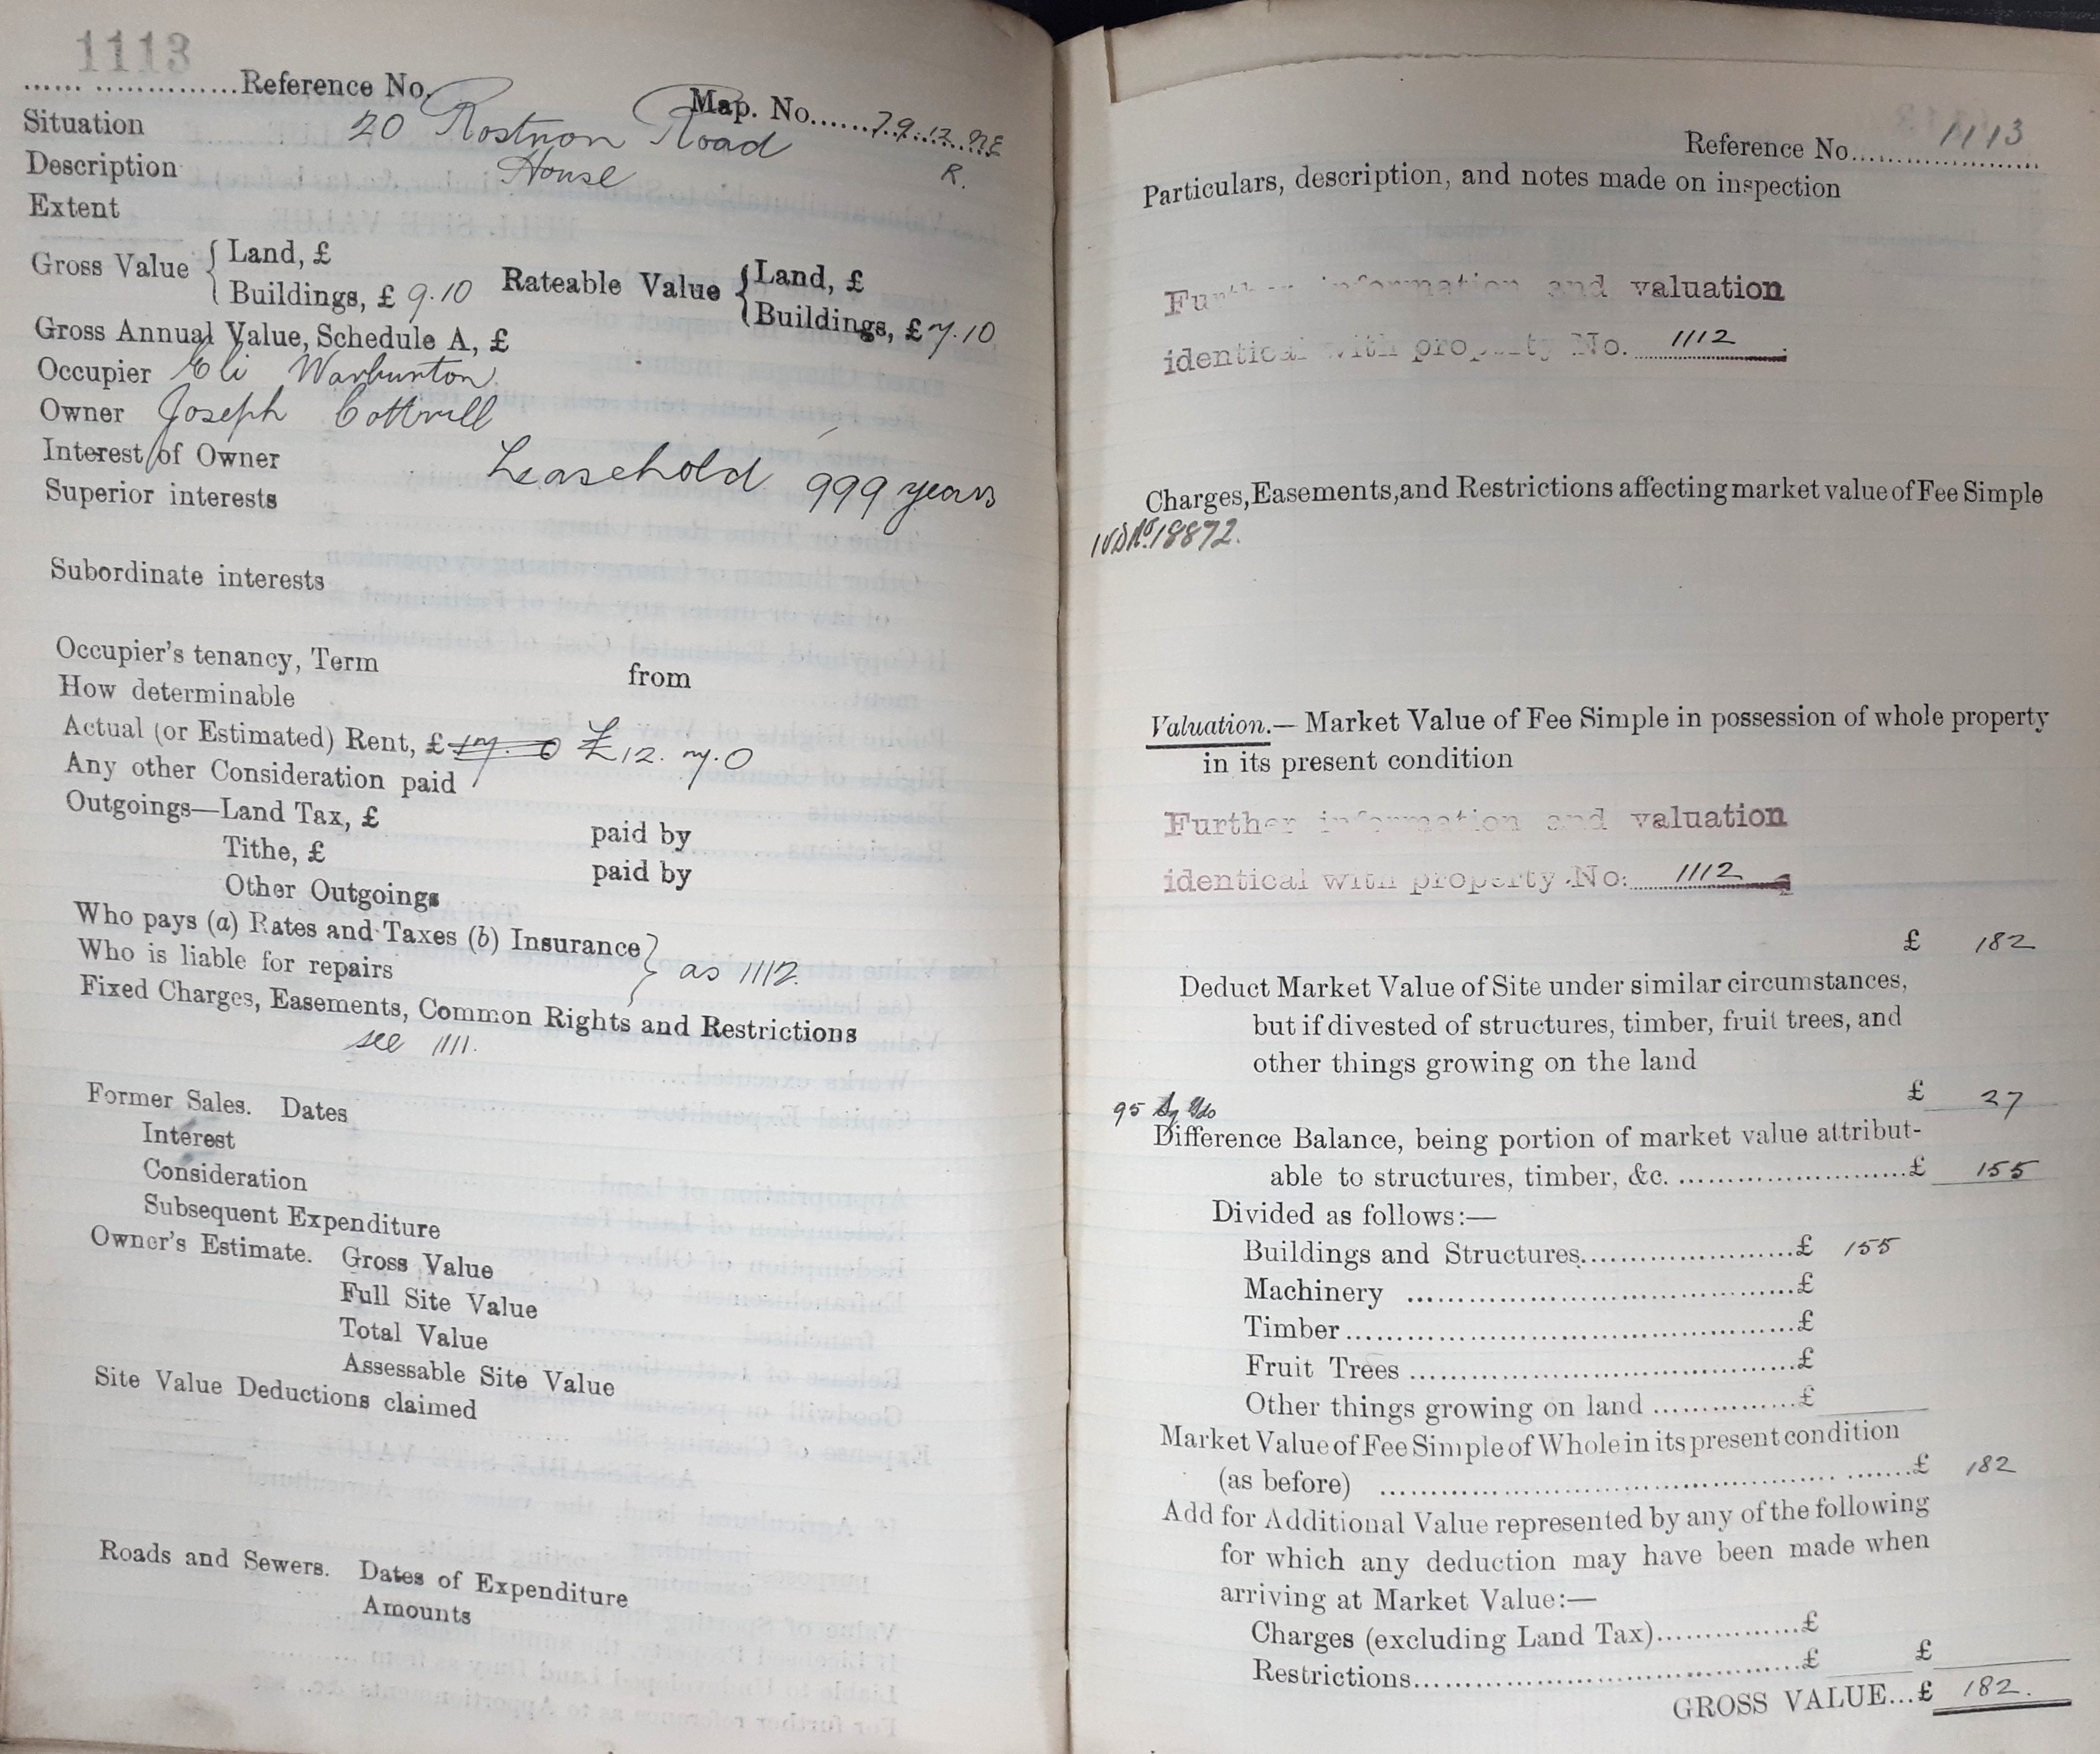 1113
Reference No. Map. No. 79.12 NE
Situation 20 Rostron Road R.
Description House
Extent
Gross Value { Land, £ Rateable Value { Land, £
Buildings, £ 9.10 Buildings, £ 7.10
Gross Annual Value, Schedule A, £
Occupier Eli Warburton
Owner Joseph Cottrill
Interest of Owner Leasehold 999 years
Superior interests
Subordinate interests
Occupier's tenancy, Term from
How determinable
Actual (or Estimated) Rent, £ £12. 7. 0
Any other Consideration paid
Outgoings—Land Tax, £ paid by
Tithe, £ paid by
Other Outgoings
Who pays (a) Rates and Taxes (b) Insurance }
Who is liable for repairs } as 1112.
Fixed Charges, Easements, Common Rights and Restrictions
see 1111.
Former Sales. Dates
Interest
Consideration
Subsequent Expenditure
Owner's Estimate. Gross Value
Full Site Value
Total Value
Assessable Site Value
Site Value Deductions claimed
Roads and Sewers. Dates of Expenditure
Amounts
Reference No. 1113
Particulars, description, and notes made on inspection
Further information and valuation
identical with property No. 1112
Charges, Easements, and Restrictions affecting market value of Fee Simple
No. 18872.
Valuation.— Market Value of Fee Simple in possession of whole property
in its present condition
Further information and valuation
identical with property No. 1112
£ 182
Deduct Market Value of Site under similar circumstances,
but if divested of structures, timber, fruit trees, and
other things growing on the land
95 Sq Yds £ 27
Difference Balance, being portion of market value attribut-
able to structures, timber, &c. £ 155
Divided as follows:—
Buildings and Structures £ 155
Machinery £
Timber £
Fruit Trees £
Other things growing on land £
Market Value of Fee Simple of Whole in its present condition
(as before) £ 182
Add for Additional Value represented by any of the following
for which any deduction may have been made when
arriving at Market Value:—
Charges (excluding Land Tax) £
Restrictions £ £
GROSS VALUE...£ 182.